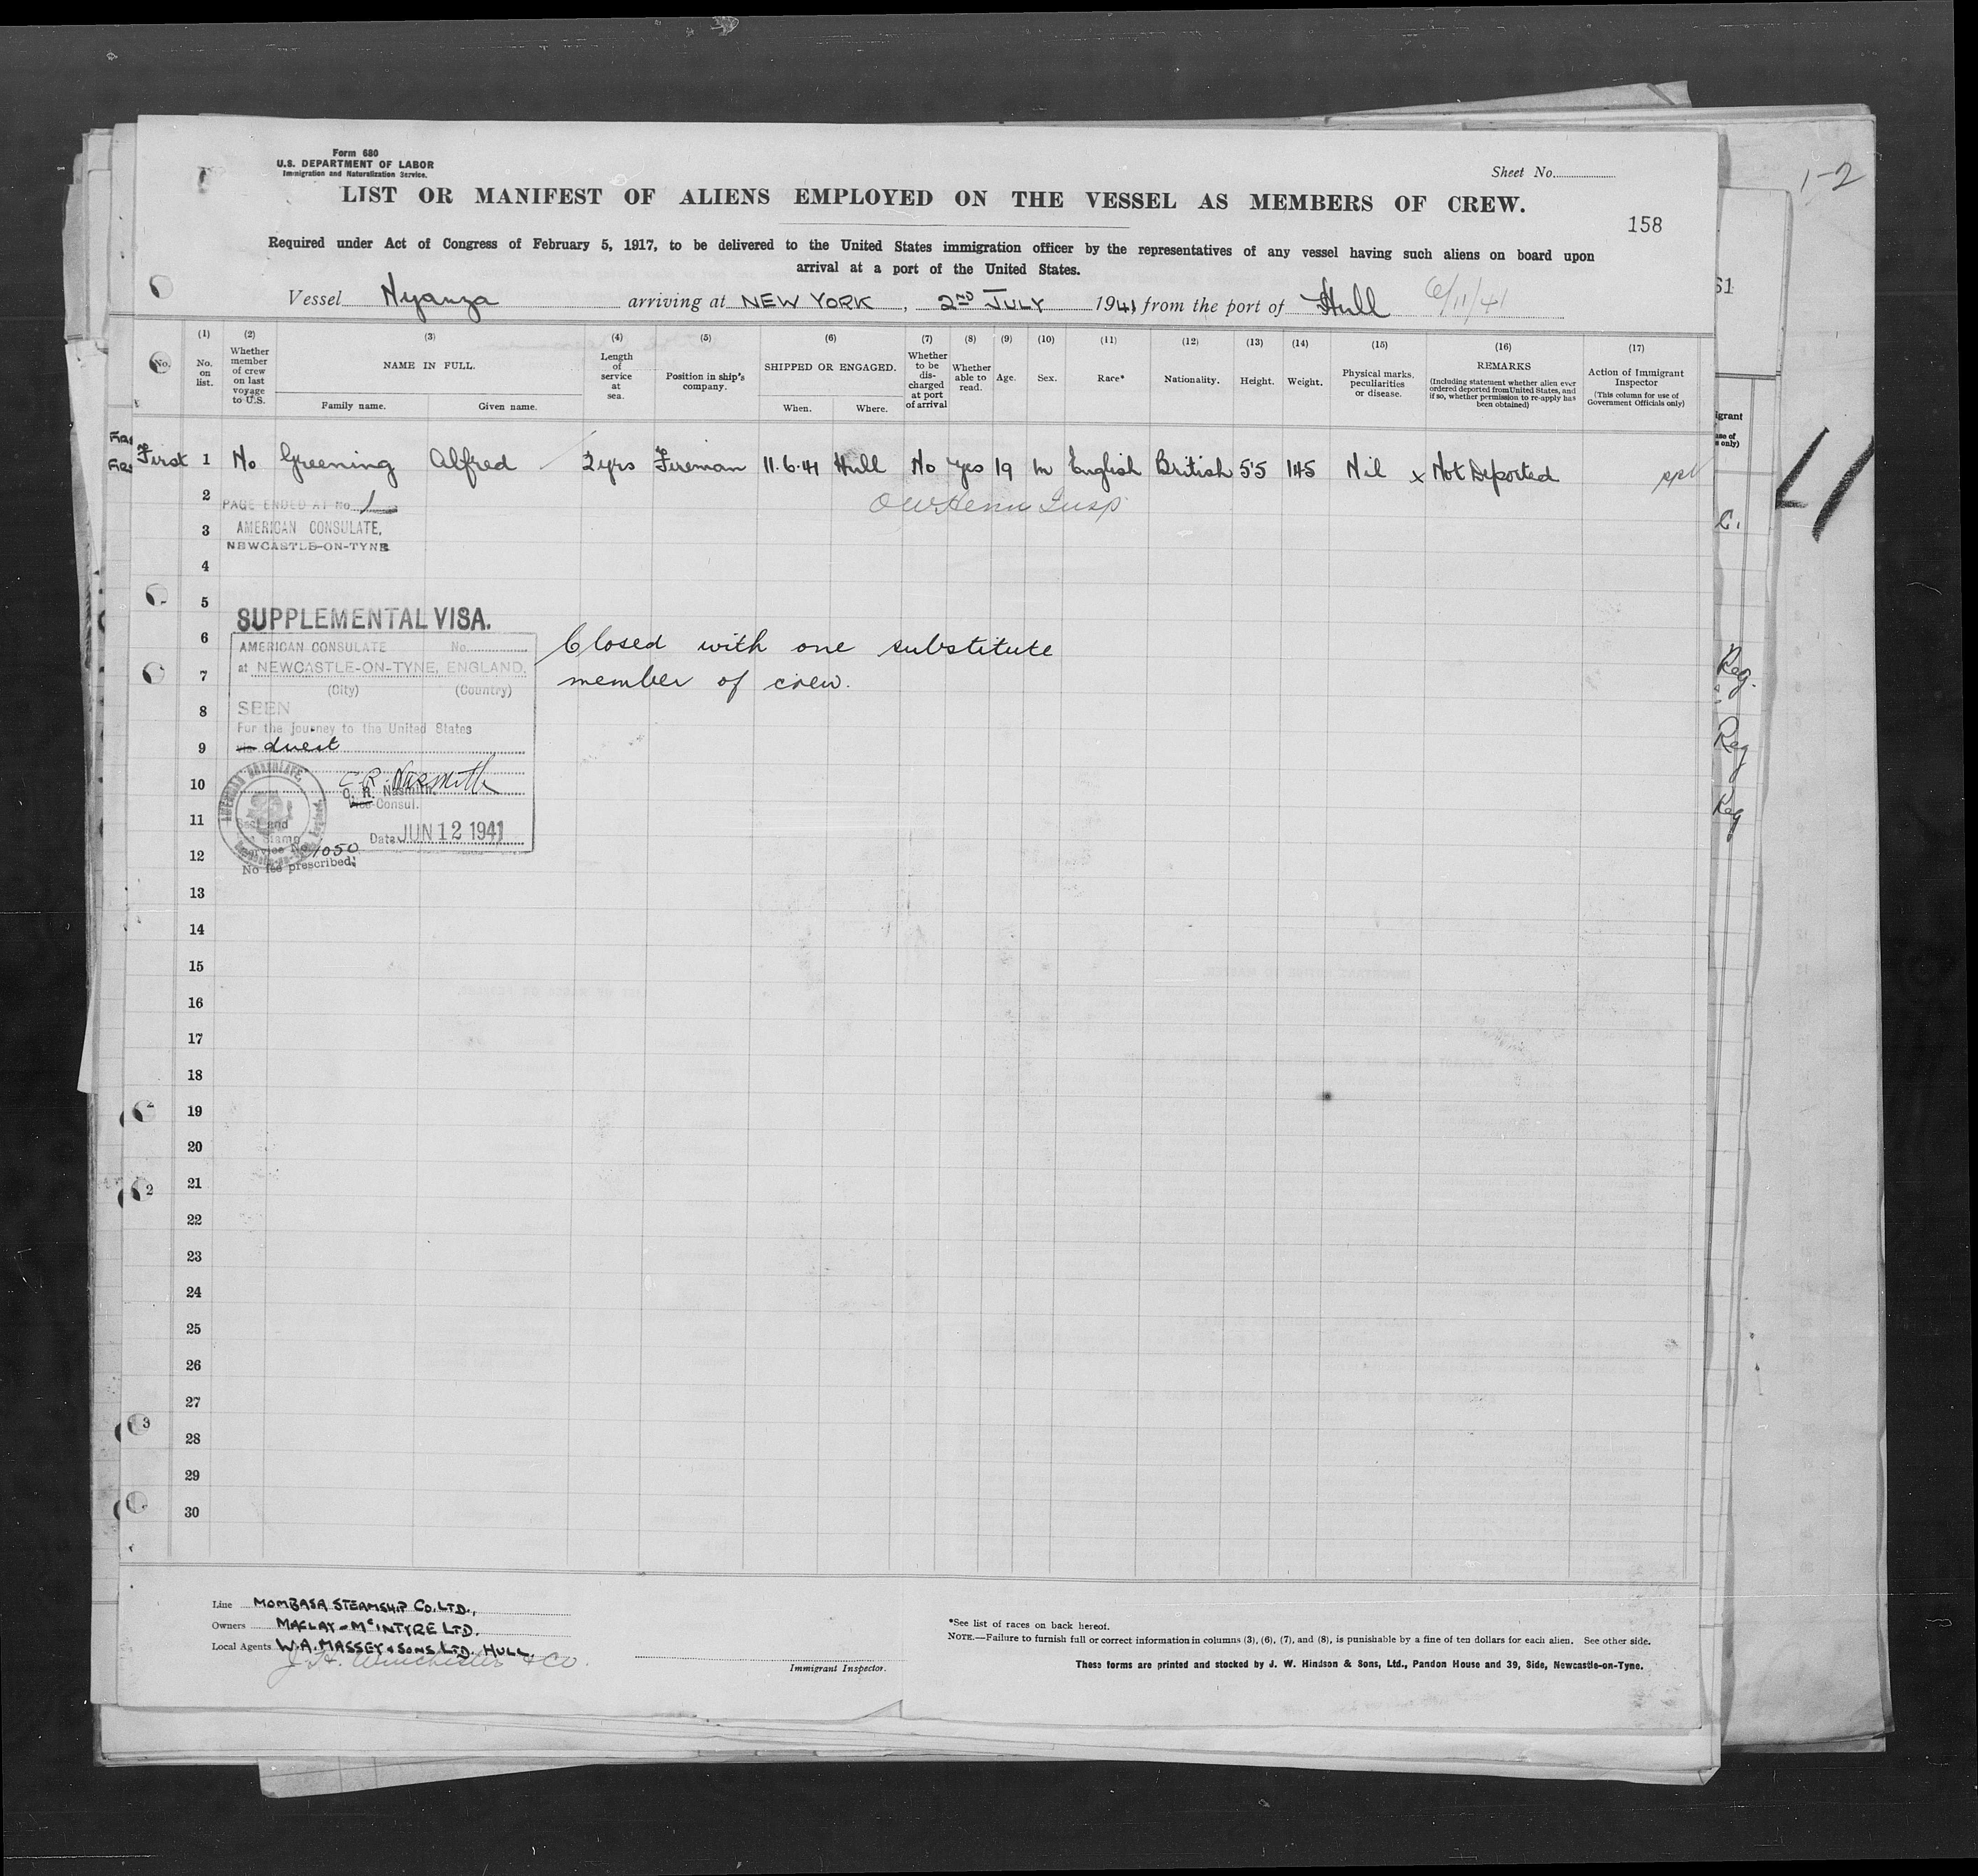 1-2
Form 680
U.S. DEPARTMENT OF LABOR
Immigration and Naturalization Service.
Sheet No.
LIST OR MANIFEST OF ALIENS EMPLOYED ON THE VESSEL AS MEMBERS OF CREW.
158
Required under Act of Congress of February 5, 1917, to be delivered to the United States immigration officer by the representatives of any vessel having such aliens on board upon
arrival at a port of the United States.
Vessel Nyanza arriving at NEW YORK, 2ND JULY 1941 from the port of Hull 6/11/41
No.
(1) No. on list.
(2) Whether member of crew on last voyage to U.S.
(3) NAME IN FULL.
Family name. Given name.
(4) Length of service at sea.
(5) Position in ship's company.
(6) SHIPPED OR ENGAGED.
When. Where.
(7) Whether to be discharged at port of arrival
(8) Whether able to read.
(9) Age.
(10) Sex.
(11) Race*
(12) Nationality.
(13) Height.
(14) Weight.
(15) Physical marks, peculiarities or disease.
(16) REMARKS
(Including statement whether alien ever ordered deported from United States, and if so, whether permission to re-apply has been obtained)
(17) Action of Immigrant Inspector
(This column for use of Government Officials only)
First 1 No Greening Alfred 2 yrs Fireman 11.6.41 Hull No Yes 19 M English British 5'5 145 Nil x Not Deported
2
PAGE ENDED AT No. 1
3 AMERICAN CONSULATE,
NEWCASTLE-ON-TYNE
4
5
SUPPLEMENTAL VISA.
6 AMERICAN CONSULATE No.
at NEWCASTLE-ON-TYNE, ENGLAND.
(City) (Country)
Closed with one substitute
member of crew.
7
8 SEEN
For the journey to the United States
9 via direct
10 C.R. Nasmith
C. R. Nasmith.
Vice Consul.
11 Date JUN 12 1941
Service No. 1050
12 No fee prescribed.
13
14
15
16
17
18
19
20
21
22
23
24
25
26
27
28
29
30
Reg.
Reg
Reg
Line MOMBASA STEAMSHIP CO. LTD.,
Owners MACLAY & McINTYRE LTD.
Local Agents W.A. MASSEY & SONS LTD. HULL.
J.H. Winchester & Co.
Immigrant Inspector.
*See list of races on back hereof.
NOTE.—Failure to furnish full or correct information in columns (3), (6), (7), and (8), is punishable by a fine of ten dollars for each alien. See other side.
These forms are printed and stocked by J. W. Hindson & Sons, Ltd., Pandon House and 39, Side, Newcastle-on-Tyne.